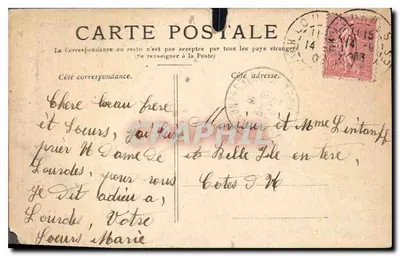 CARTE POSTALE
La Correspondance au recto n'est pas acceptée par tous les pays étrangers
(Se renseigner à la Poste)
Côté correspondance.
Côté adresse.
Chere beau frere
et Soeurs, j'ai
prier N Dame De
Lourdes, pour vous
Je Dit adieu a,
Lourdes, Votre
Soeurs Marie
Monsieur et Mme
Belle Isle en tere,
Cotes D N